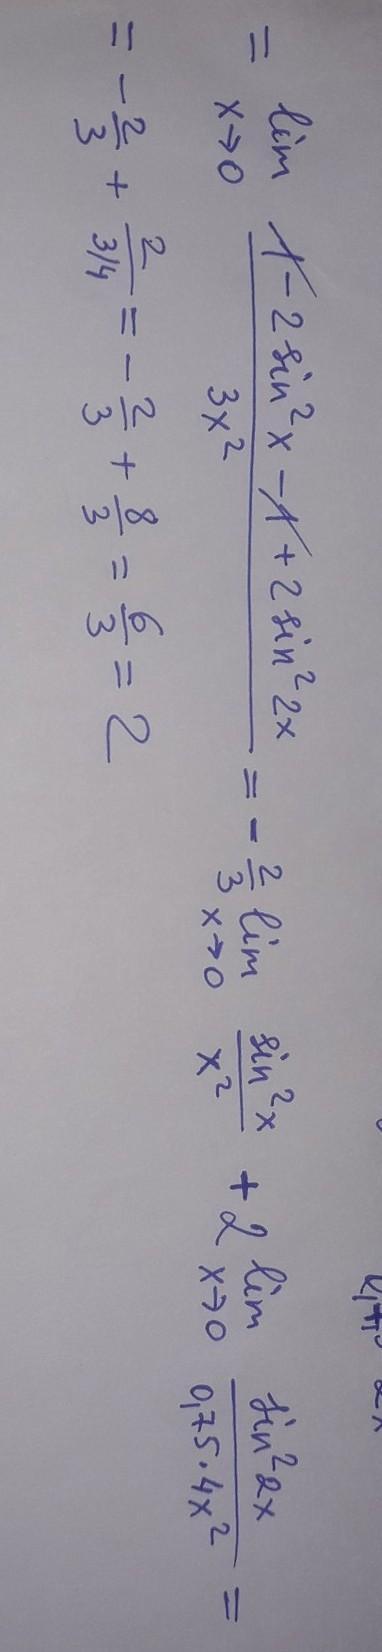 = lim x→0 (1 - 2 sin² x - 1 + 2 sin² 2x) / 3x² = - 2/3 lim x→0 sin² x / x² + 2 lim x→0 sin² 2x / 0,75 · 4x² =
= - 2/3 + 2 / 3/4 = - 2/3 + 8/3 = 6/3 = 2